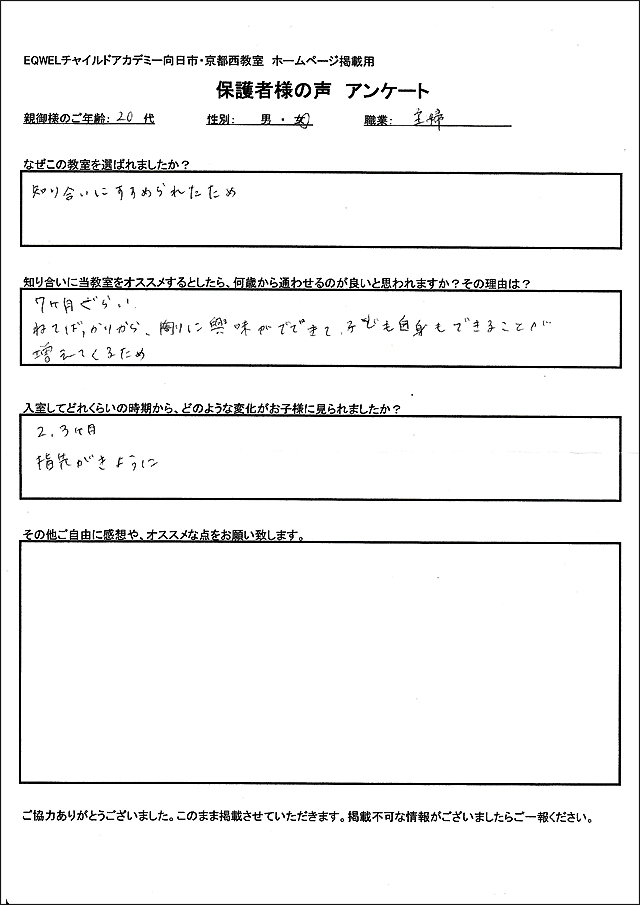 EQWELチャイルドアカデミー向日市・京都西教室 ホームページ掲載用
保護者様の声 アンケート
親御様のご年齢: 20 代 性別: 男 ・ 女 職業: 主婦
なぜこの教室を選ばれましたか?
知り合いにすすめられたため
知り合いに当教室をオススメするとしたら、何歳から通わせるのが良いと思われますか?その理由は?
7ヶ月ぐらい
ねてばっかりから、周りに興味がでてきて、子ども自身もできることが
増えてくるため
入室してどれくらいの時期から、どのような変化がお子様に見られましたか?
2、3ヶ月
指先がきように
その他ご自由に感想や、オススメな点をお願い致します。
ご協力ありがとうございました。このまま掲載させていただきます。掲載不可な情報がございましたらご一報ください。